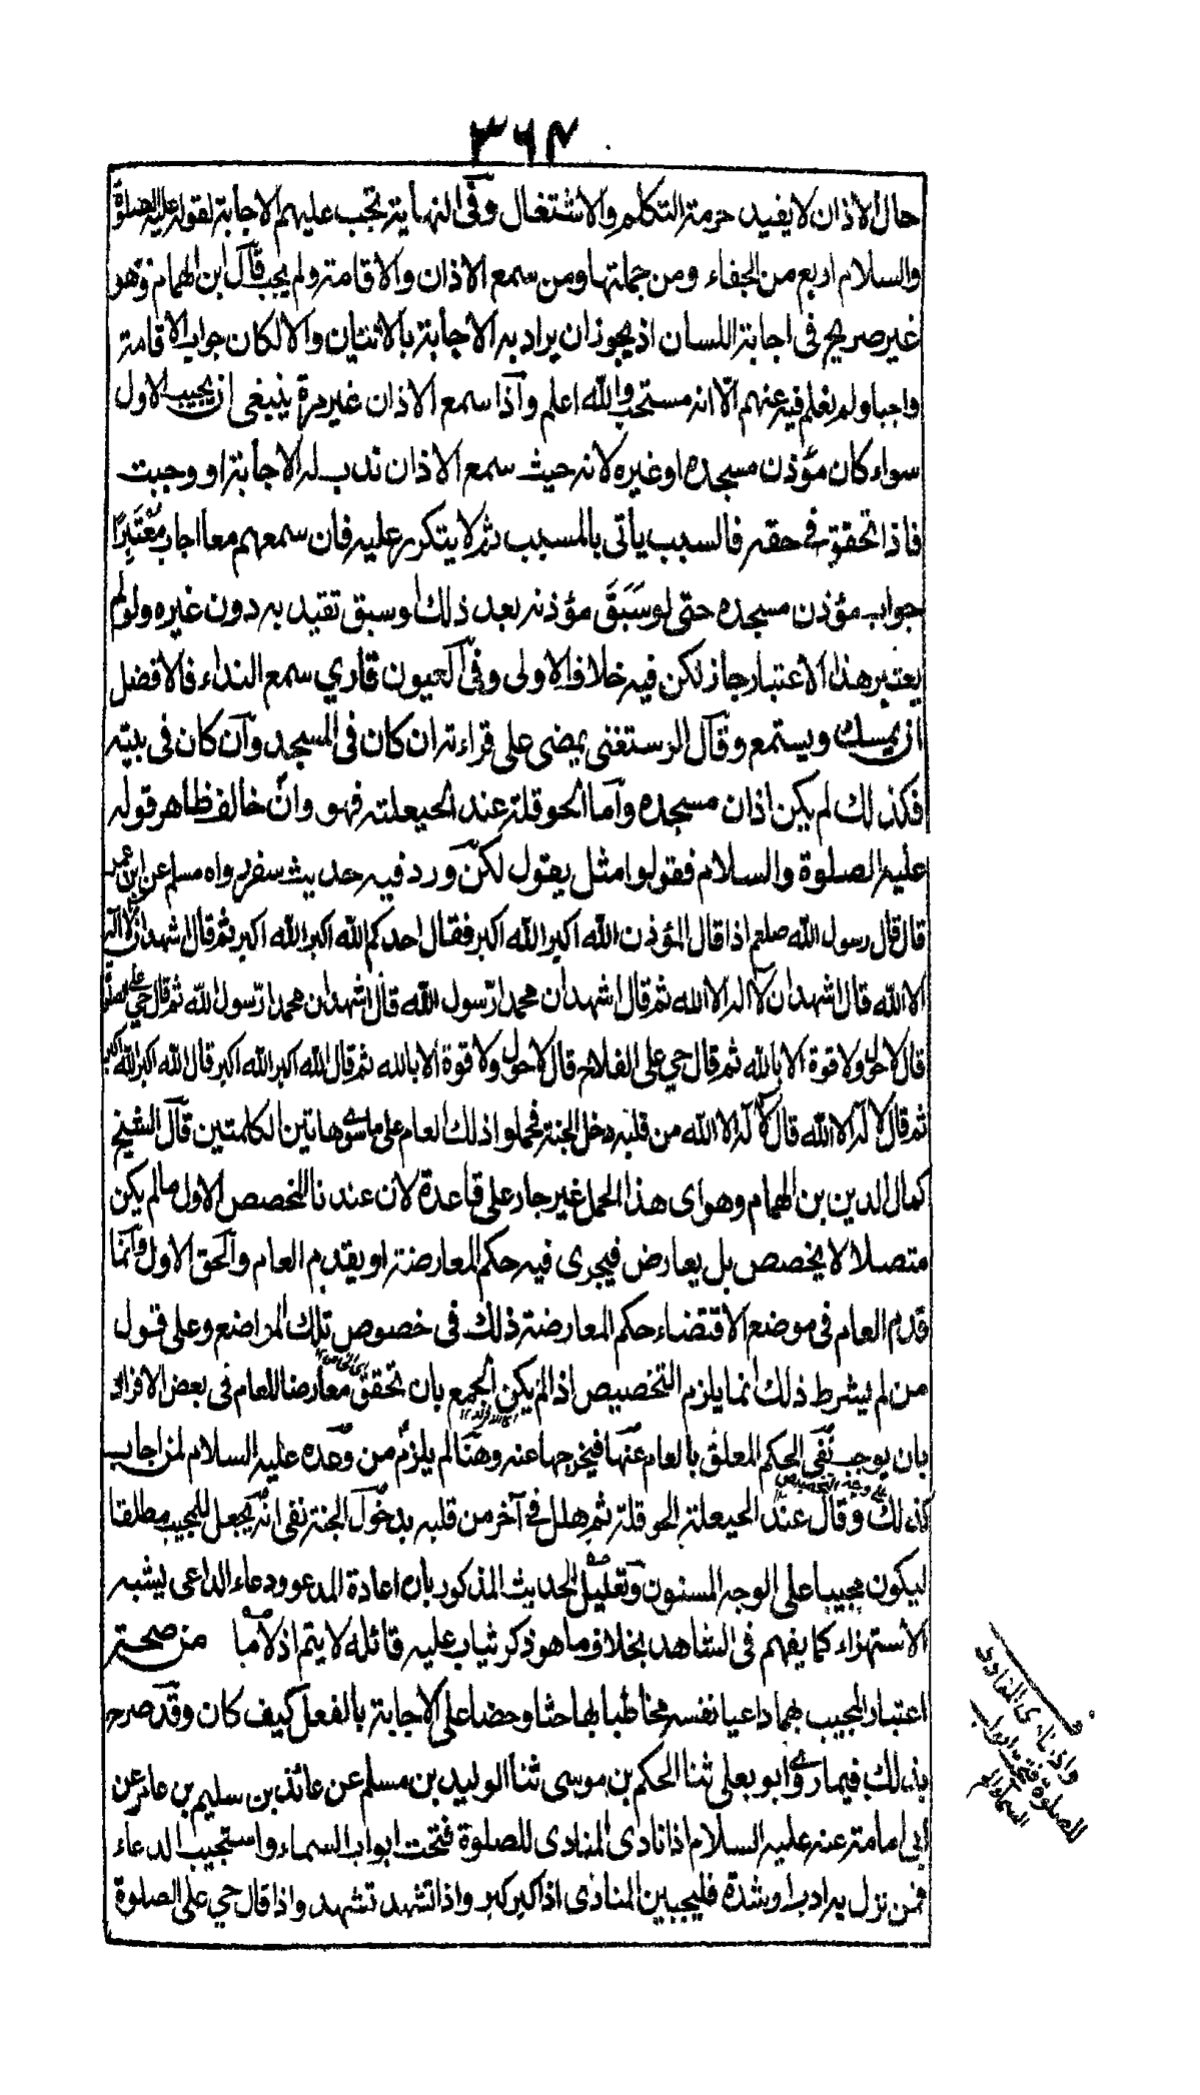 ۳۶۴
حال الاذان لا يفيد حرمة التكلم والاشتغال وفي النهاية تجب عليهم الاجابة لقوله عليه الصلوة
والسلام اربع من الجفاء ومن جملتها ومن سمع الاذان والاقامة ولم يجب قال ابن الهمام وهو
غير صريح فى اجابة اللسان اذ يجوز ان يراد به الاجابة بالاتيان والا لكان جواب الاقامة
واجبا ولم نعلم فيه عنهم الا انه مستحب والله اعلم واذا سمع الاذان غير مرة ينبغى ان يجيب الاول
سواء كان مؤذن مسجده او غيره لانه حيث سمع الاذان ندب له الاجابة او وجبت
فاذا تحقق فى حقه فالسبب يأتى بالمسبب ثم لا يتكرر عليه فان سمعهم معا اجاب معتبرا
جواب مؤذن مسجده حتى لو سبق مؤذنه بعد ذلك او سبق تقيد به دون غيره ولو لم
يعتبر هذا الاعتبار جاز لكن فيه خلاف الاولى وفى العيون قاري سمع النداء فالافضل
ان يمسك ويستمع وقال الرستغنى يمضى على قراءته ان كان فى المسجد وان كان فى بيته
فكذلك لم يكن اذان مسجده واما الحوقلة عند الحيعلة فهو وان خالف ظاهر قوله
عليه الصلوة والسلام فقولوا مثل يقول لكن ورد فيه حديث سفر رواه مسلم عن ابن عمر
قال قال رسول الله صلعم اذا قال المؤذن الله اكبر الله اكبر فقال احدكم الله اكبر الله اكبر ثم قال اشهد ان لا اله
الا الله قال اشهد ان لا اله الا الله ثم قال اشهد ان محمدا رسول الله قال اشهد ان محمدا رسول الله ثم قال حي على الصلوة
قال لا حول ولا قوة الا بالله ثم قال حي على الفلاح قال لا حول ولا قوة الا بالله ثم قال الله اكبر الله اكبر قال الله اكبر الله اكبر
ثم قال لا اله الا الله قال لا اله الا الله من قلبه دخل الجنة فحملوا ذلك العام على ما سوى هاتين الكلمتين قال الشيخ
كمال الدين بن الهمام وهو اى هذا الحمل غير جار على قاعدة لان عندنا المخصص الاول ما لم يكن
متصلا لا يخصص بل يعارض فيجرى فيه حكم المعارضة او يقدم العام والحق الاول وانما
قدم العام فى موضع الاقتضاء حكم المعارضة ذلك فى خصوص تلك المواضع وعلى قول
من لم يشرط ذلك انما يلزم التخصيص اذا لم يكن الجمع بان تحقق معارضا للعام فى بعض الافراد
بان يوجب نفى الحكم المعلق بالعام عنها فيخرجها عنه وهنا لم يلزم من وعده عليه السلام لمن اجاب
كذلك وقال عند الحيعلة الحوقلة ثم هلل فى آخر من قلبه بدخول الجنة نفى انه يجعل للمجيب مطلقا
ليكون مجيبا على الوجه المسنون وتعليل الحديث المذكور بان اعادة المدعو ودعاء الداعى يشبه
الاستهزاء كما يفهم فى الشاهد بخلاف ما هو ذكر ثياب عليه قائله لا يتم اذ لا ما من صحة
اعتبار المجيب بهما داعيا نفسه مخاطبا بها حثا وحضا على الاجابة بالفعل كيف كان وقد صرح
بذلك فيما روى ابو يعلى ثنا الحكم بن موسى ثنا الوليد بن مسلم عن عائذ بن سليم بن عامر عن
ابى امامة عنه عليه السلام اذا نادى المنادى للصلوة فتحت ابواب السماء واستجيب الدعاء
فمن نزل به او شدة فليجيبن المنادى اذا كبر كبر واذا تشهد تشهد واذا قال حي على الصلوة
واذ نادى المنادى
للصلوة فتحت ابواب
السماء